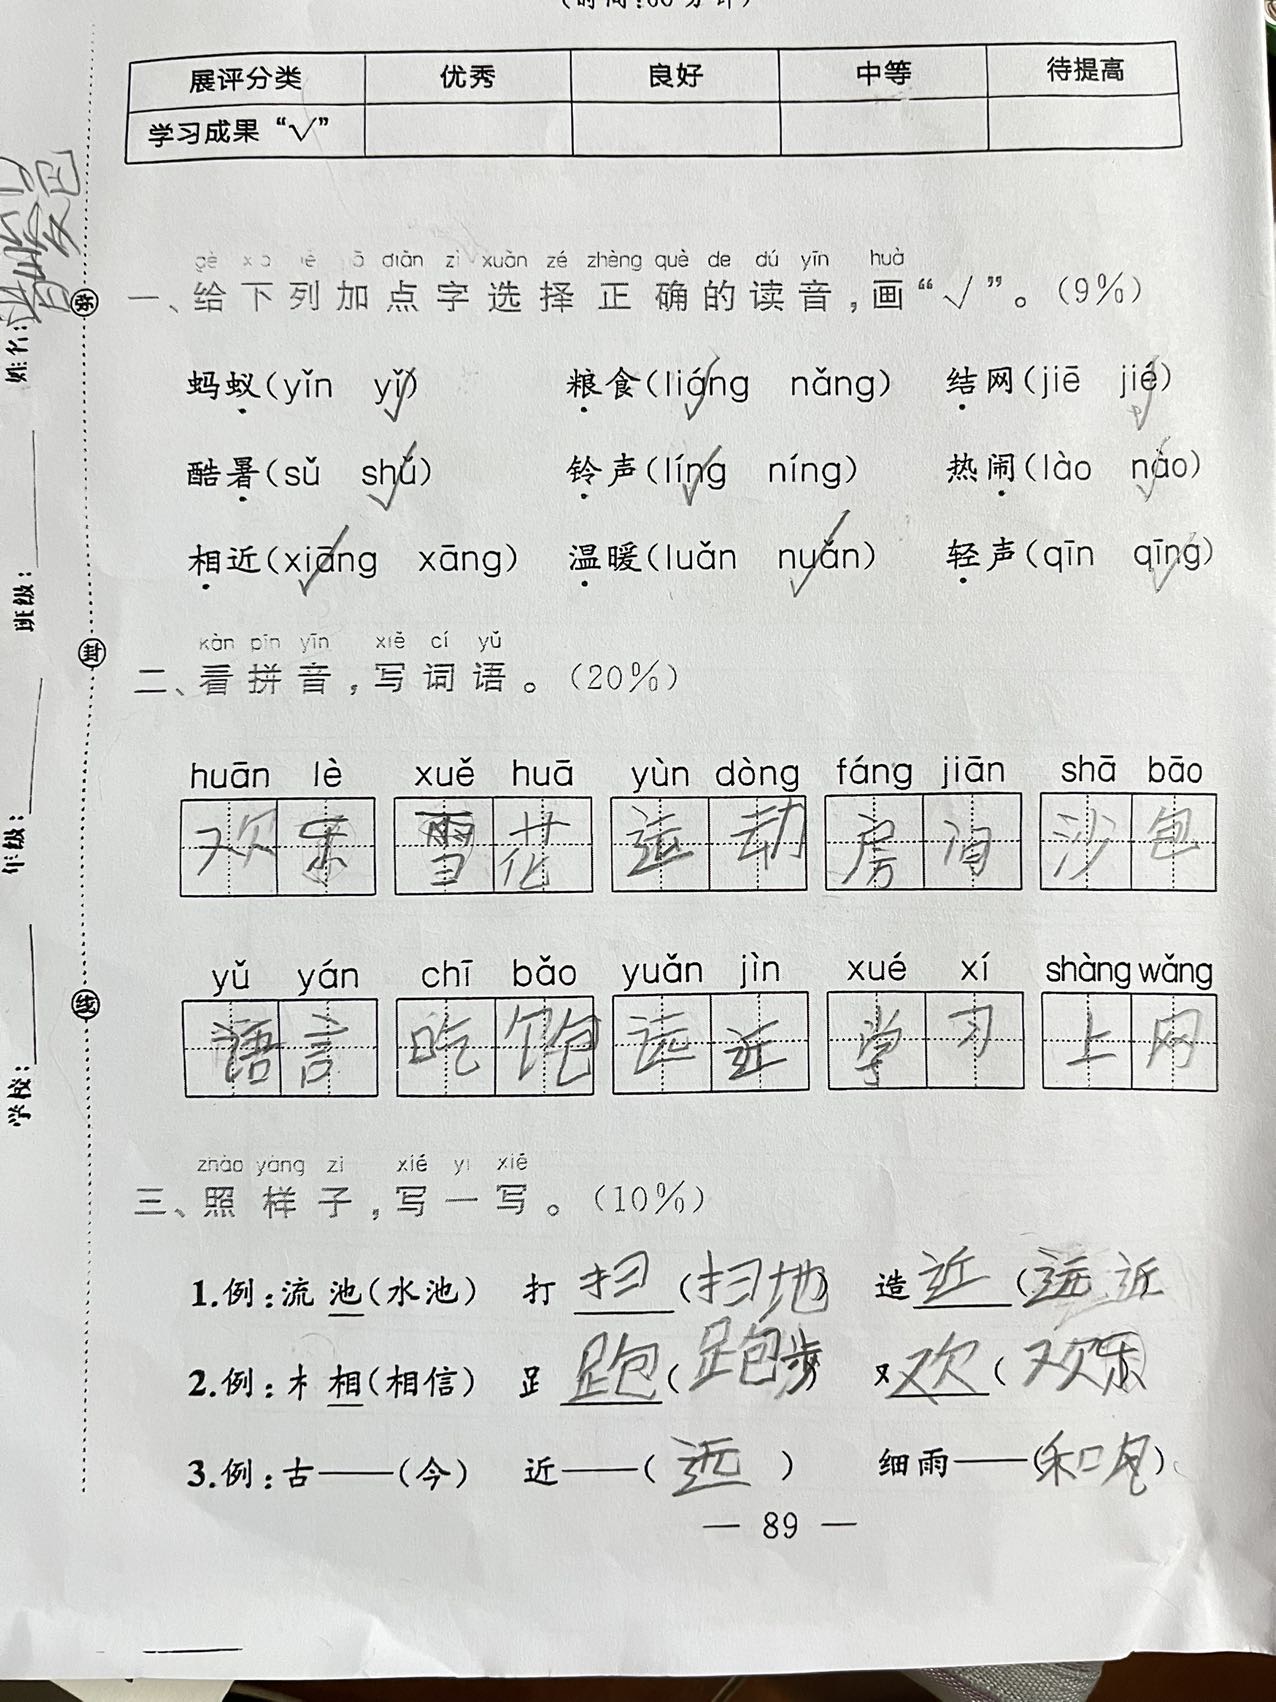 (时间:60分钟)
展评分类 优秀 良好 中等 待提高
学习成果“√”
gè diǎn zì xuǎn zé zhèng què de dú yīn huà
一、给下列加点字选择正确的读音,画“√”。(9%)
蚂蚁(yǐn yǐ) 粮食(liáng nǎng) 结网(jiē jié)
酷暑(sǔ shǔ) 铃声(líng níng) 热闹(lào nào)
相近(xiāng xāng) 温暖(luǎn nuǎn) 轻声(qīn qīng)
kàn pīn yīn xiě cí yǔ
二、看拼音,写词语。(20%)
huān lè xuě huā yùn dòng fáng jiān shā bāo
欢乐 雪花 运动 房间 沙包
yǔ yán chī bǎo yuǎn jìn xué xí shàng wǎng
语言 吃饱 远近 学习 上网
zhào yàng zi xiě yi xiě
三、照样子,写一写。(10%)
1.例:流 池(水池) 打 扫(扫地) 造 近(远近
2.例:木 相(相信) 足 跑(跑步 又 欢(欢乐
3.例:古——(今) 近——(远) 细雨——(和风)
— 89 —
学校: 年级: 班级: 姓名:
弥 封 线